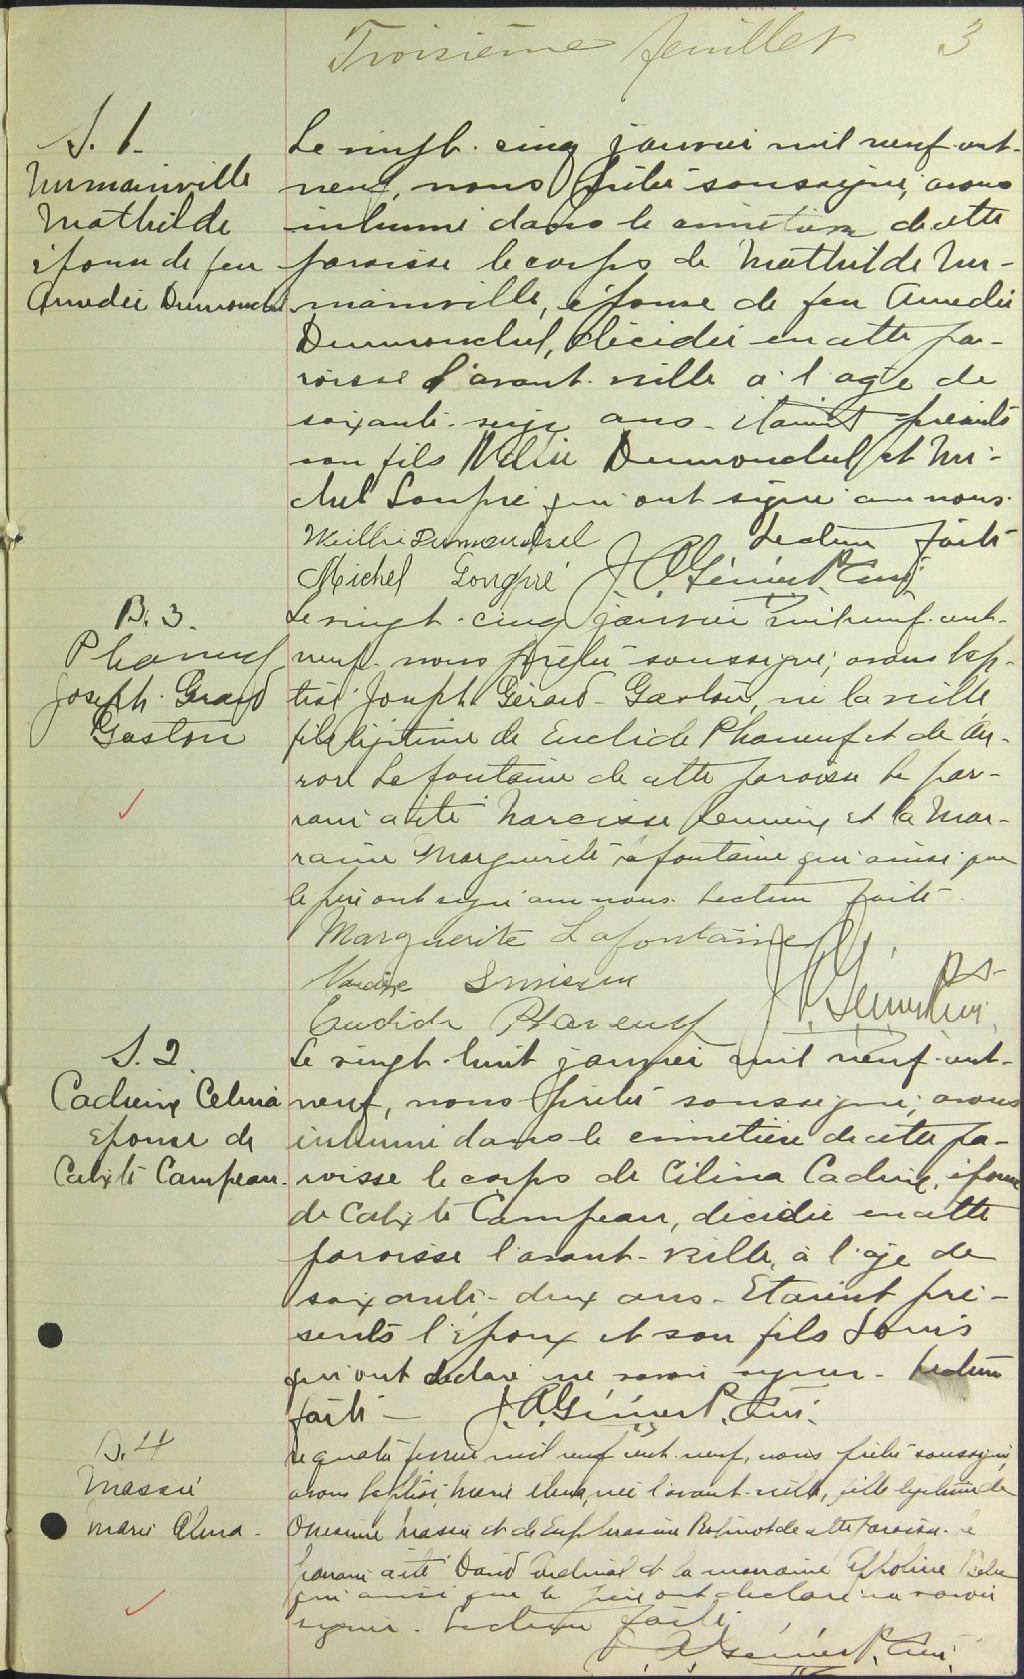 Troisième feuillet 3
S. 1.
Mathilde
épouse de feu
Amédée Dumouchel
Le vingt-cinq janvier mil neuf-cent-
neuf, nous prêtre soussigné, avons
inhumé dans le cimetière de cette
paroisse le corps de Mathilde
mainville, épouse de feu Amédée
Dumouchel, décédée en cette pa-
roisse l'avant-veille à l'age de
soixante ans. étaient présents
son fils Dumouchel et Mi-
chel Longpré qui ont signé avec nous.
Lecture faite
Dumouchel
Michel Longpré Ptre Curé
B. 3.
Phaneuf
Joseph Gérard
Gaston
Le vingt-cinq janvier mil neuf-cent-
neuf nous prêtre soussigné, avons bap-
tisé Joseph Gérard Gaston, né la veille
fils légitime de Euclide Phaneuf et de Au-
rore Lafontaine de cette paroisse Le par-
rain a été Narcisse et la mar-
raine Marguerite Lafontaine qui ainsi que
le père ont signé avec nous. Lecture faite.
Marguerite Lafontaine
Phaneuf
S. 2.
Cadieux Celina
Epouse de
Calixte Campeau.
Le vingt-huit janvier mil neuf-cent-
neuf, nous prêtre soussigné, avons
inhumé dans le cimetière de cette pa-
roisse le corps de Célina Cadieux, épouse
de Calixte Campeau, décédée en cette
paroisse l'avant-veille, à l'age de
soixante-deux ans. Etaient pré-
sents l'époux et son fils Louis
qui ont déclaré ne savoir signer. Lecture
faite — Ptre Curé.
B. 4
Massié
Marie Alma.
Le quatre février mil neuf cent neuf, nous prêtre soussigné
avons baptisé Marie Alma, née l'avant-veille, fille légitime de
Onesime Massié et de Euphrasine Robinot de cette paroisse. Le
parrain a été David Cardinal et la marraine Appoline
qui ainsi que le père ont déclaré ne savoir
signer. Lecture faite.
Ptre Curé.